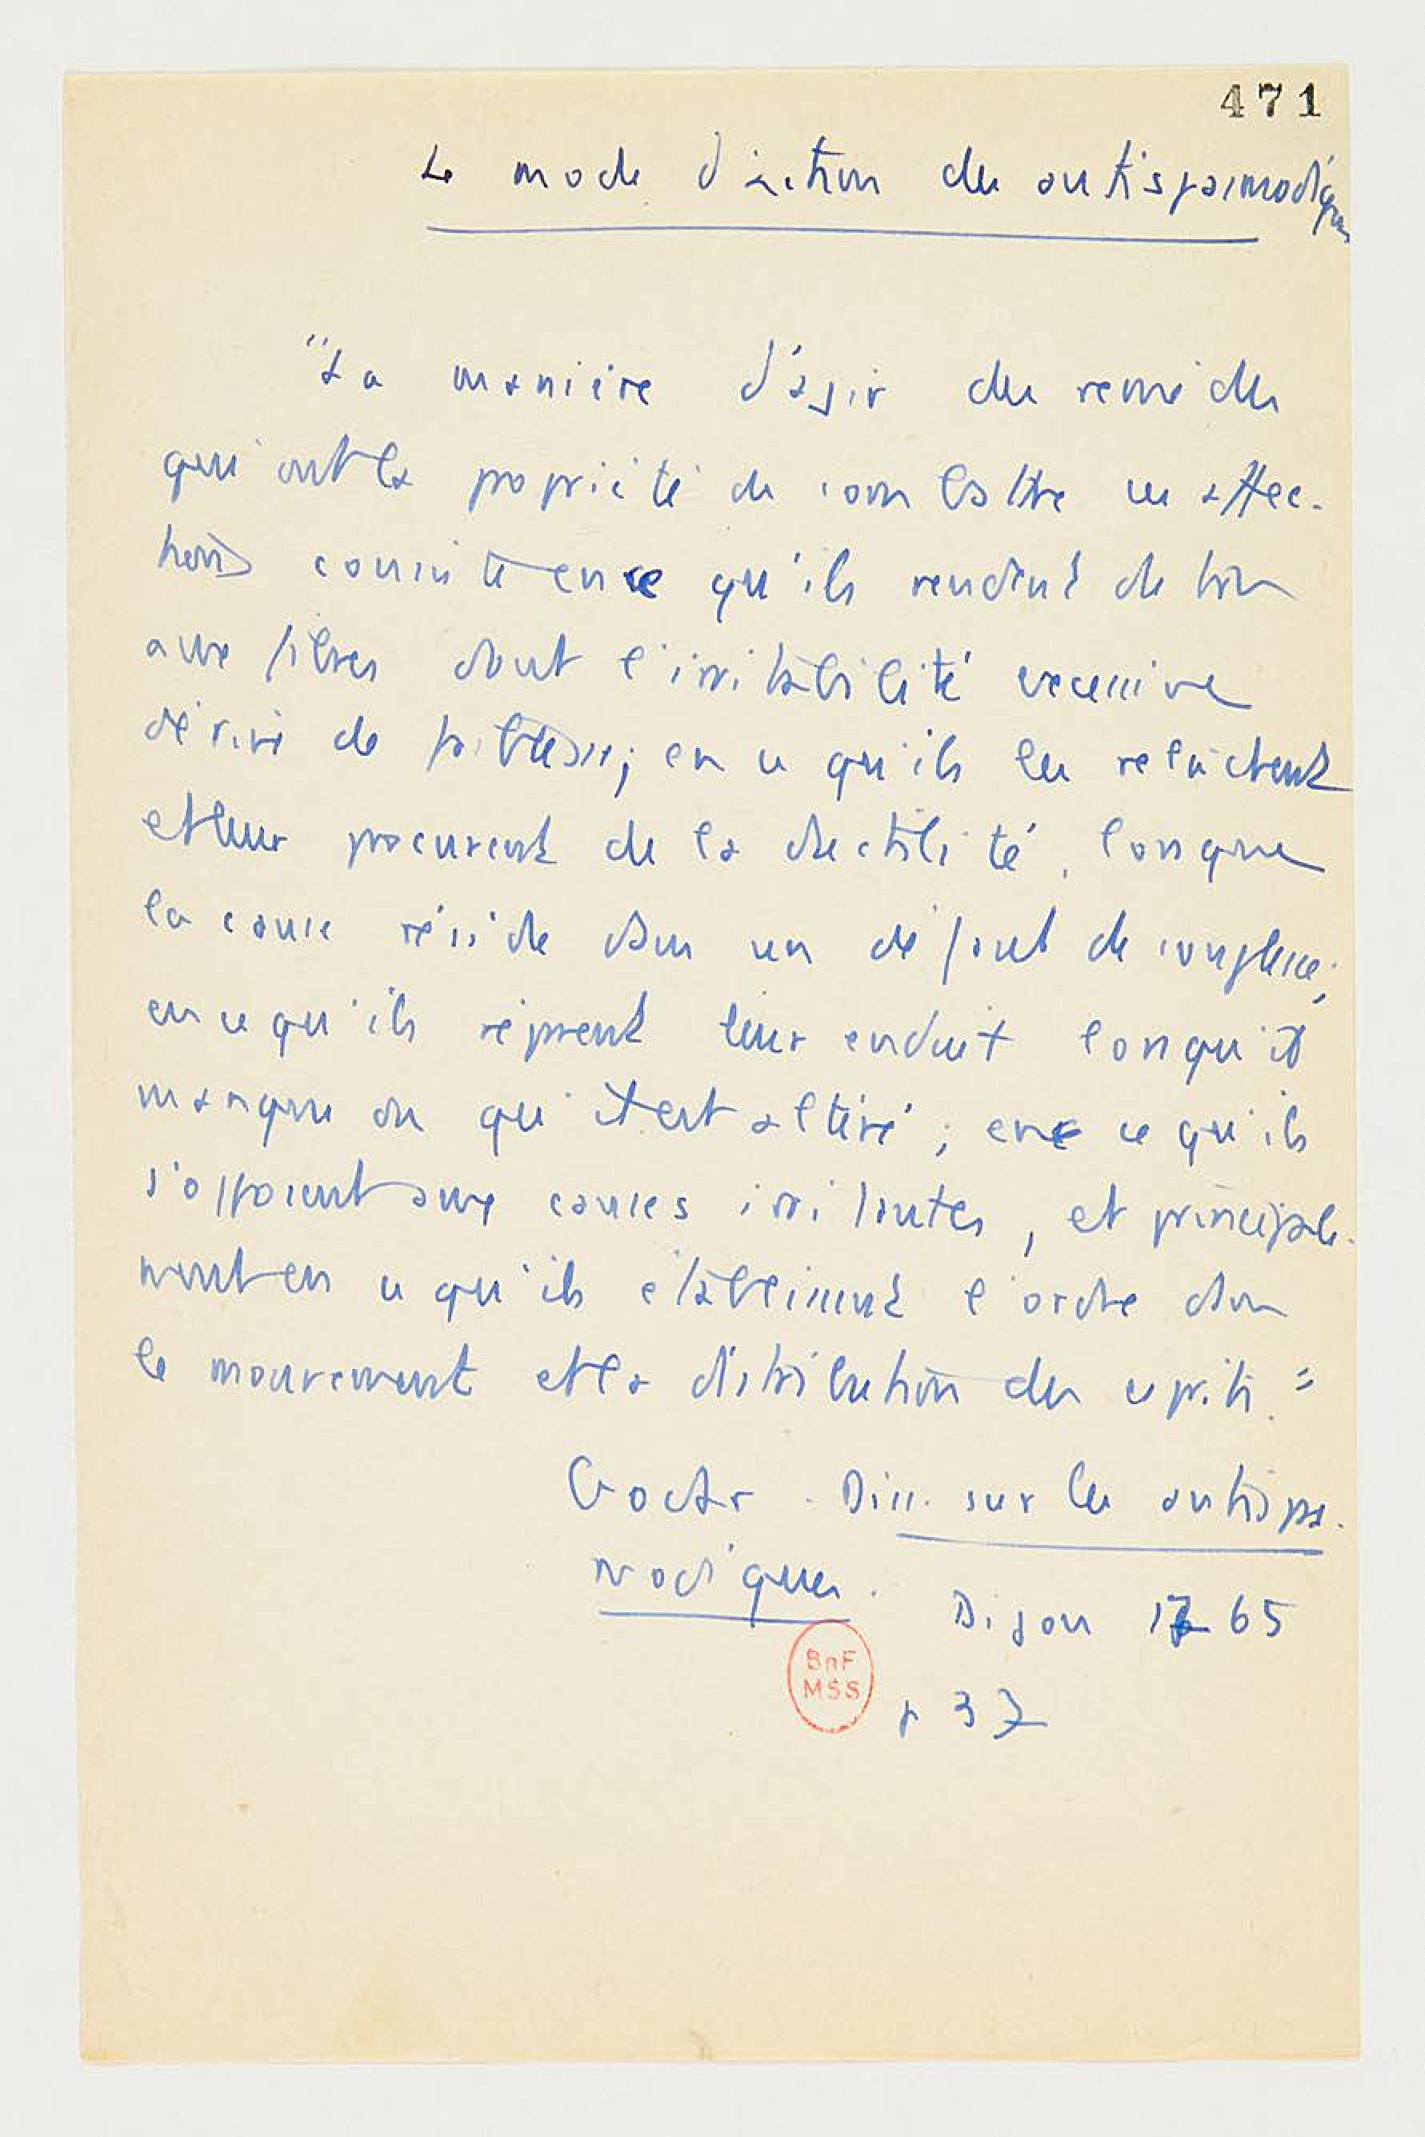 471
Le mode d'action des antispasmodiques
"La manière d'agir des remèdes
qui ont la propriété de combattre ces affec-
tions consiste en ce qu'ils rendent de ton
aux fibres dont l'irritabilité excessive
dérive de faiblesse; en ce qu'ils les relâchent
et leur procurent de la ductilité, lorsque
la cause réside dans un défaut de souplesse;
en ce qu'ils réparent leur enduit lorsqu'il
manque ou qu'il est altéré; en ce qu'ils
s'opposent aux causes irritantes, et principale-
ment en ce qu'ils établissent l'ordre dans
le mouvement et la distribution des esprits."
Diss. sur les antispas-
modiques. Dijon 1765
p 37
BnF
MSS